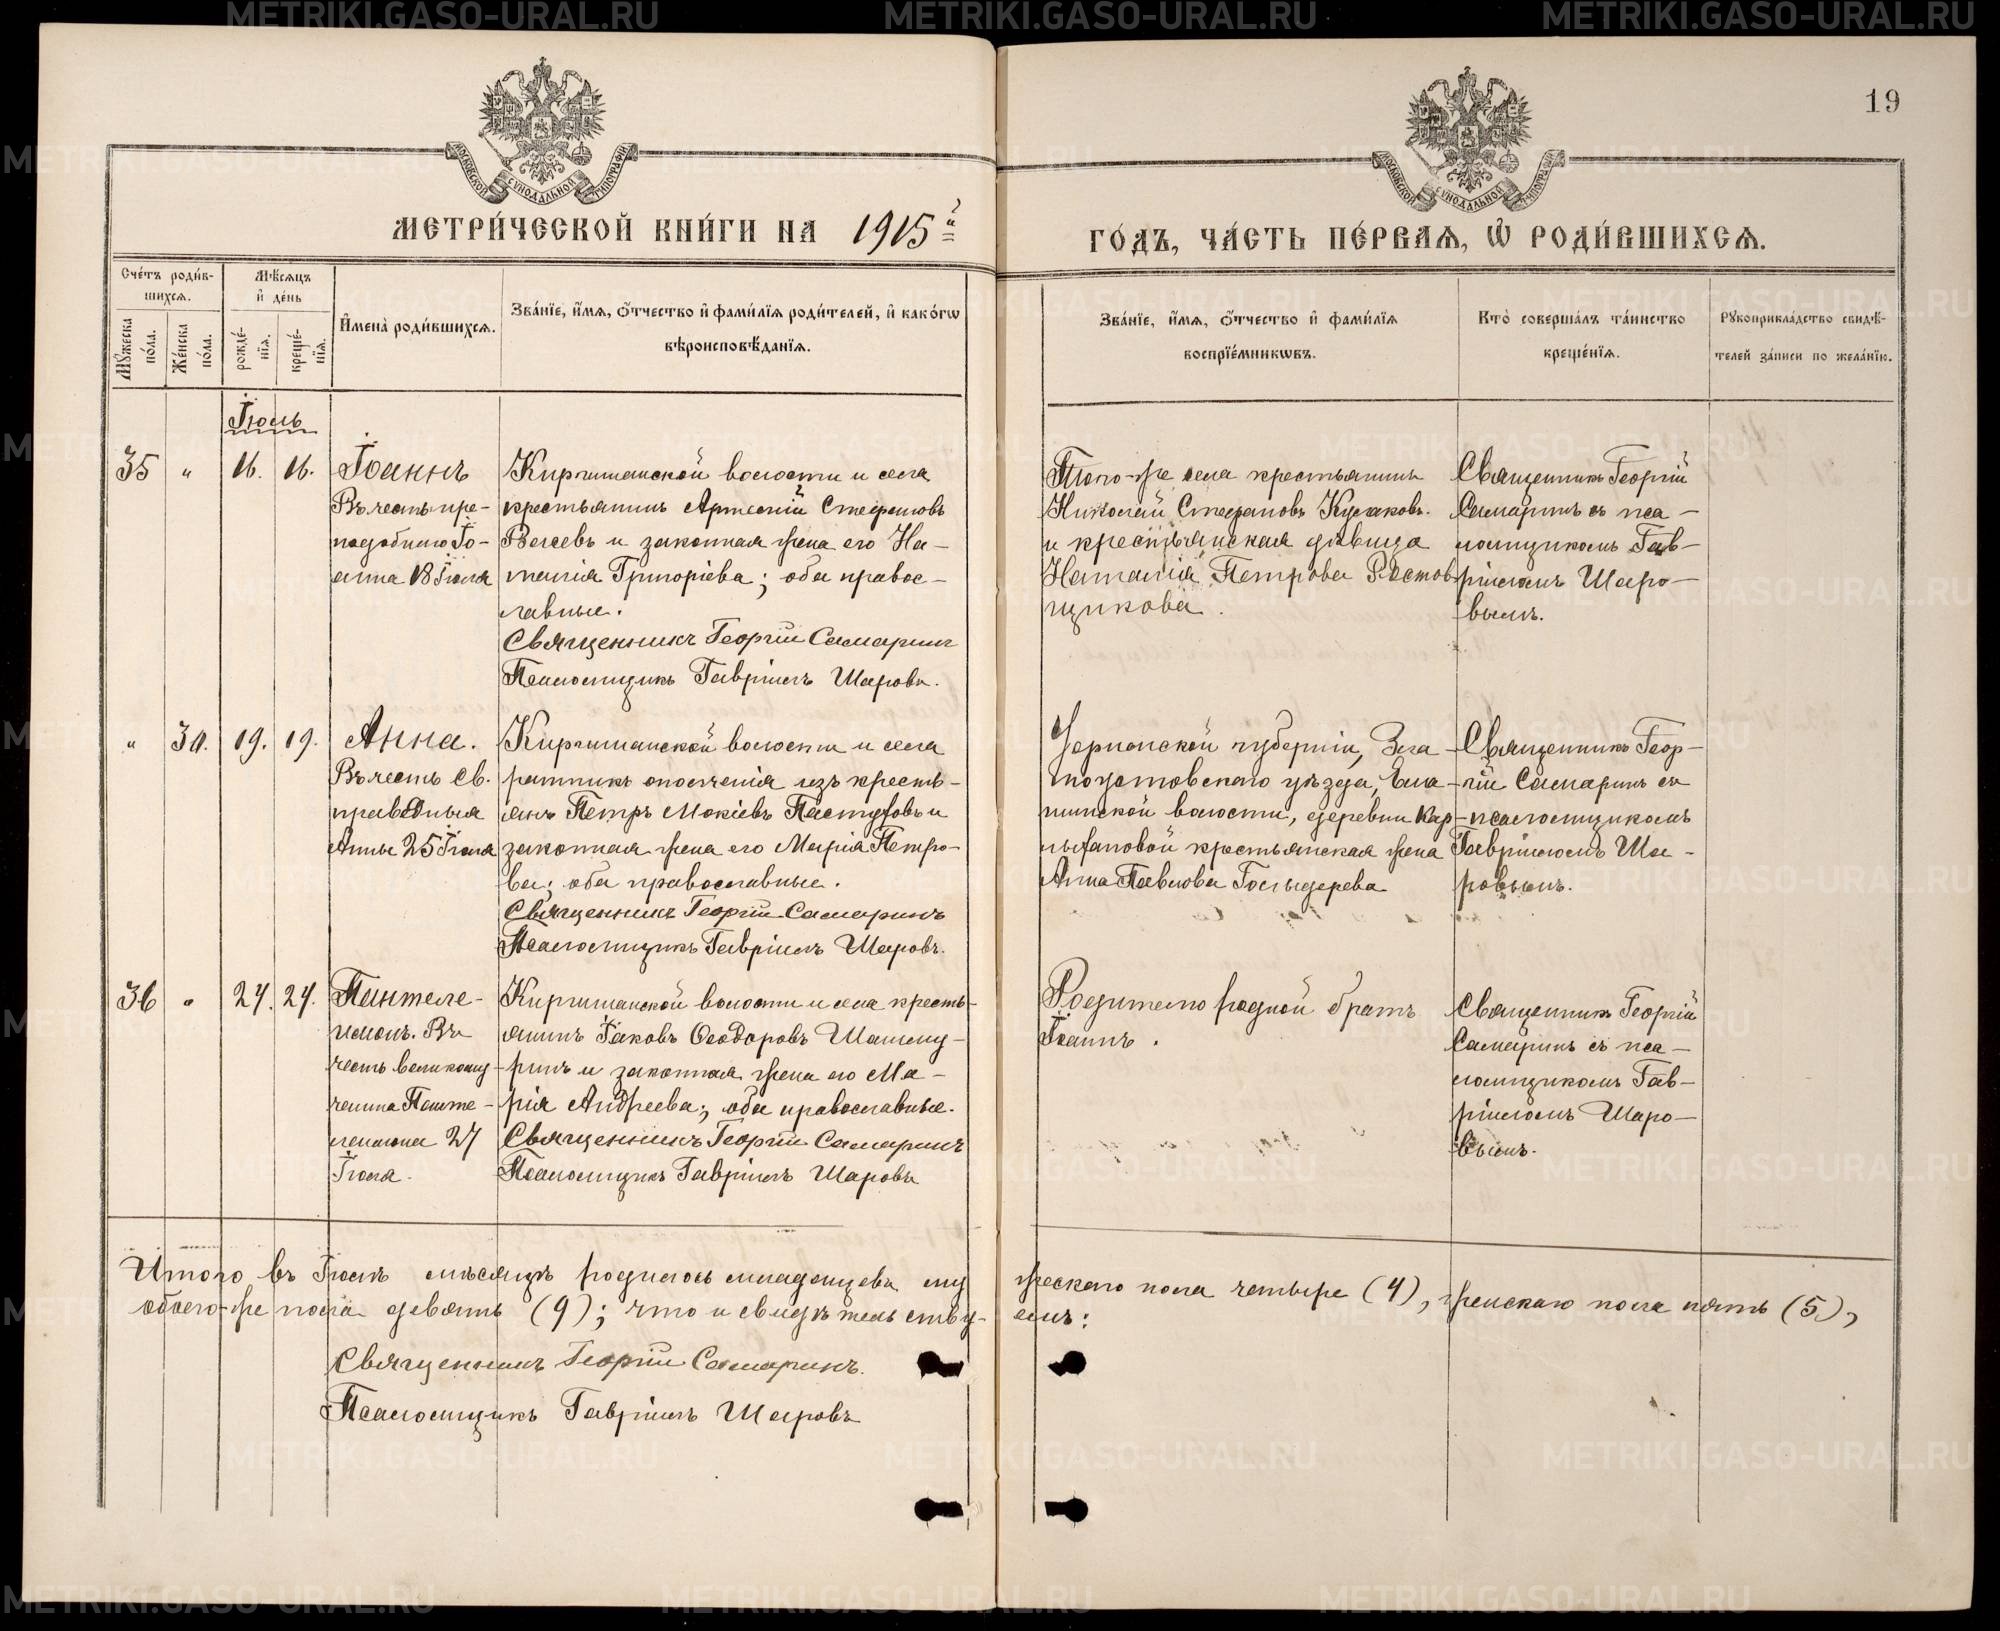 19
МОСКОВСКОЙ СУНОДАЛЬНОЙ ТИПОГРАФІИ
МОСКОВСКОЙ СУНОДАЛЬНОЙ ТИПОГРАФІИ
МЕТРИ́ЧЕСКОЙ КНИ́ГИ НА 1915й
ГО́ДЪ, ЧА́СТЬ ПЕ́РВАѦ, Ѡ РОДИ́ВШИХСѦ.
Сче́тъ роди́в-
шихсѧ.
Мꙋ́жеска по́ла.
Же́нска по́ла.
Мѣ́сѧцъ
и де́нь
рожде́-
нїѧ.
креще́-
нїѧ.
Имена̀ роди́вшихсѧ.
Зва́нїе, и́мѧ, ѻ́тчество и фами́лїѧ роди́телей, и како́гѡ
вѣроисповѣ́данїѧ.
Зва́нїе, и́мѧ, ѻ́тчество и фами́лїѧ
воспрїе́мникѡвъ.
Кто̀ соверша́лъ та́инство
креще́нїѧ.
Рꙋкоприкла́дство свидѣ́-
телей за́писи по жела́нїю.
Іюль
35 " 16. 16.
Іоаннъ
Въ честь пре-
подобнаго Іо-
анна 18 Іюля
Киргишанской волости и села
крестьянинъ Арсеній Стефановъ
и законная жена его На-
талія Григоріева; оба правос-
лавные.
Священникъ Георгій Самаринъ
Псаломщикъ Гавріилъ Шаровъ.
Того-же села крестьянинъ
Николай Стефановъ Кусаковъ.
и крестьянская дѣвица
Наталія Петрова Ростов
щикова.
Священникъ Георгій
Самаринъ съ пса-
ломщикомъ Гав-
ріиломъ Шаро-
вымъ.
" 30. 19. 19.
Анна.
Въ честь св.
праведныя
Анны 25 Іюля
Киргишанской волости и села
ратникъ ополченія изъ кресть-
янъ Петръ Мокіевъ Пастуховъ и
законная жена его Марія Петро-
ва; оба православные.
Священникъ Георгій Самаринъ
Псаломщикъ Гавріилъ Шаровъ.
Уфимской губерніи, Зла-
тоустовскаго уѣзда,
волости, деревни Кар-
крестьянская жена
Анна Павлова
Священникъ Геор-
гій Самаринъ съ
псаломщикомъ
Гавріиломъ Ша-
ровымъ.
36 " 24. 24.
Пантеле-
имонъ. Въ
честь великому-
ченика Панте-
леимона 27
Іюля.
Киргишанской волости и села кресть-
янинъ Іаковъ Ѳеодоровъ Шашму-
ринъ и законная жена его Ма-
рія Андреева; оба православные.
Священникъ Георгій Самаринъ
Псаломщикъ Гавріилъ Шаровъ
Родителю родной братъ
Іоаннъ.
Священникъ Георгій
Самаринъ съ пса-
ломщикомъ Гав-
ріиломъ Шаро-
вымъ.
Итого въ Іюлѣ мѣсяцѣ родилось младенцевъ му жескаго пола четыре (4), женскаго пола пять (5),
обоего-же пола девять (9); что и свидѣтельству- емъ:
Священникъ Георгій Самаринъ.
Псаломщикъ Гавріилъ Шаровъ
METRIKI.GASO-URAL.RU